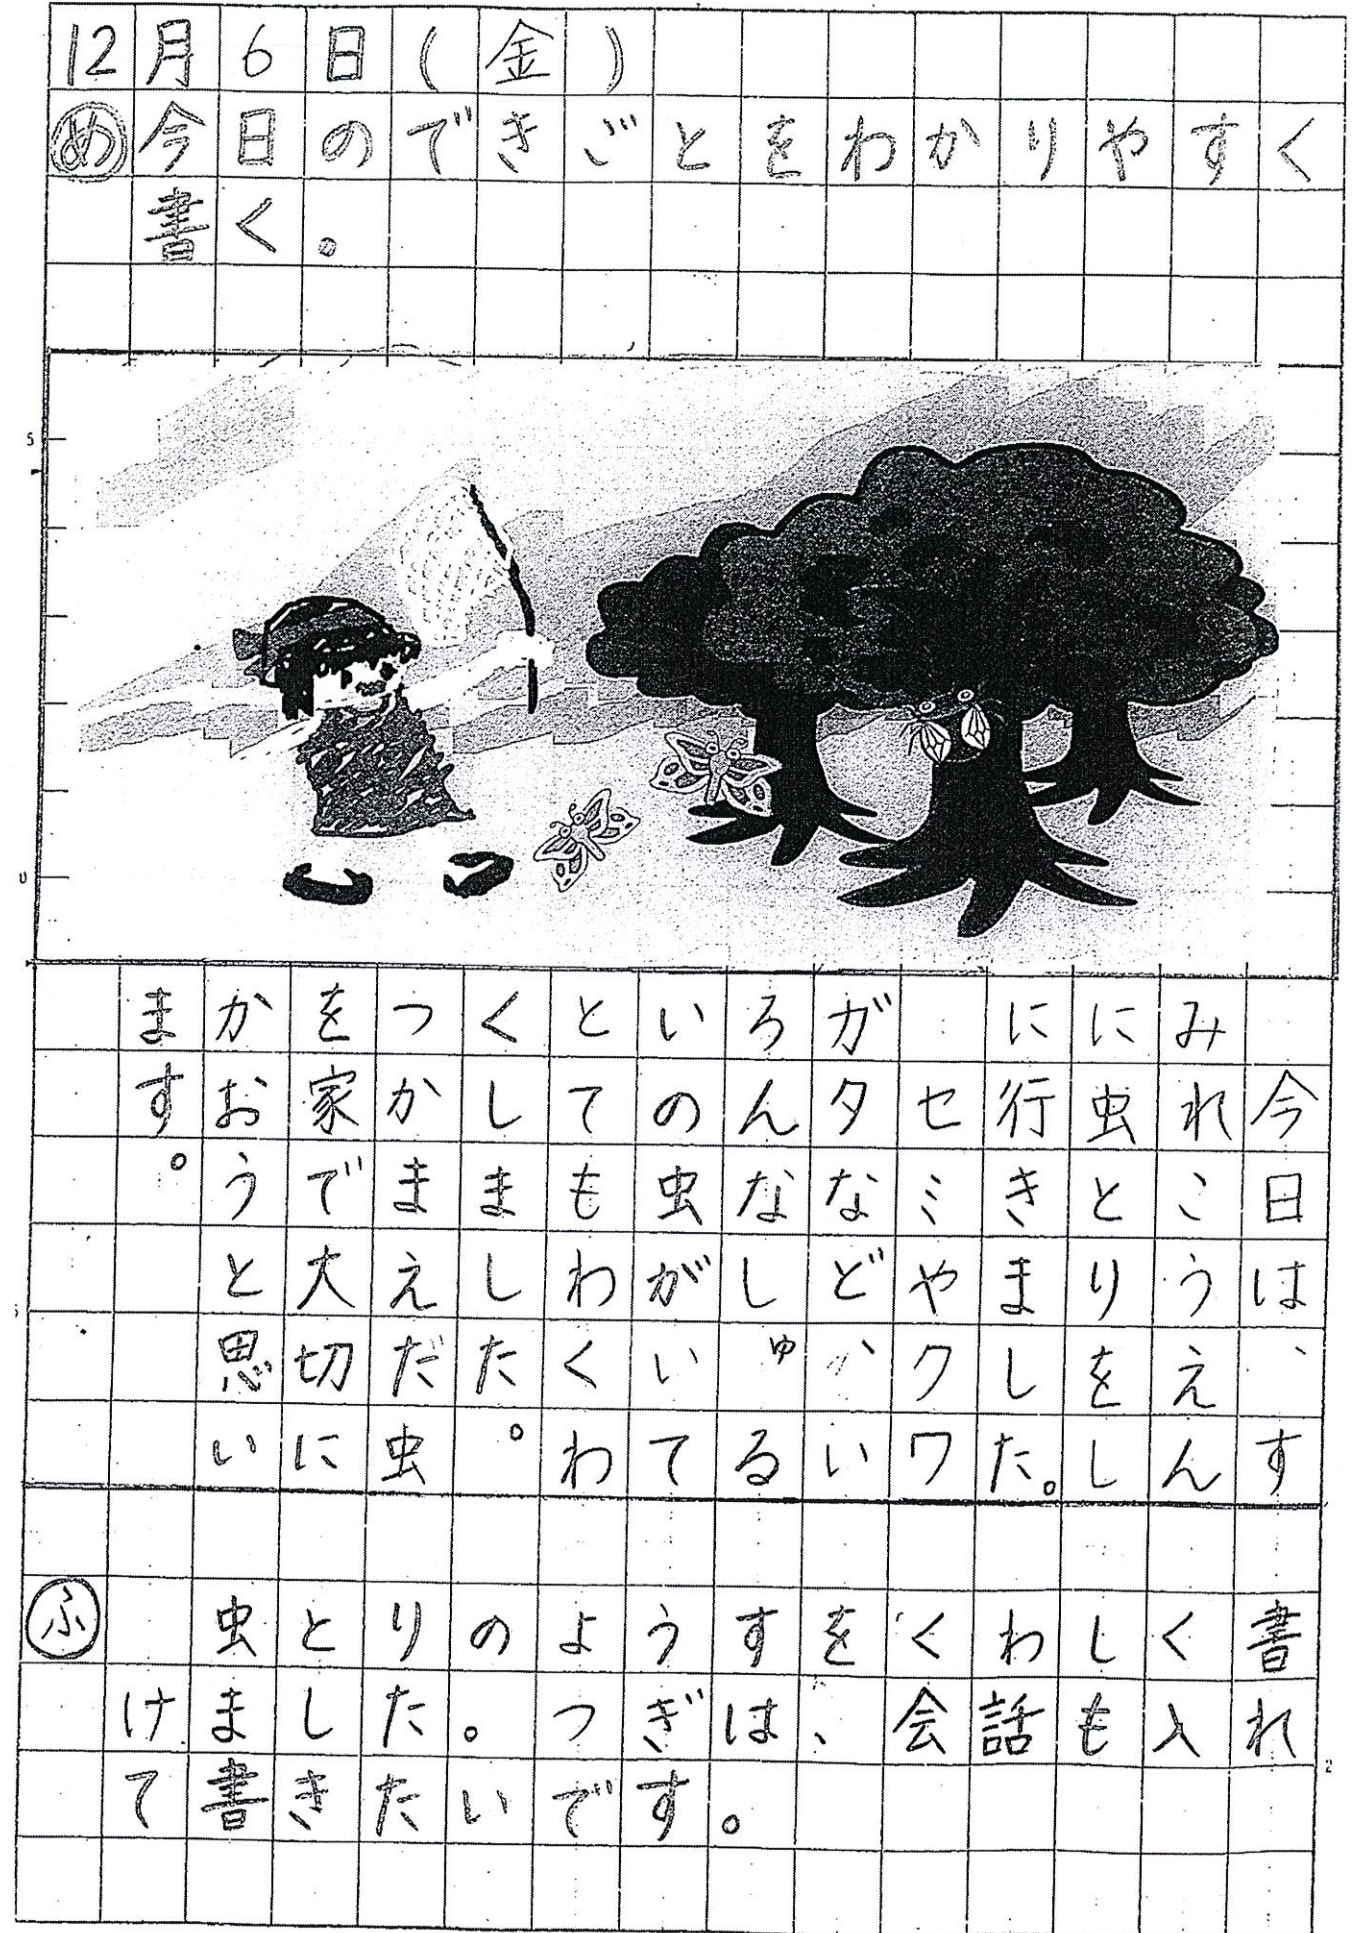 12月6日(金)
め今日のできごとをわかりやすく
書く。
5
0
今日は、す
みれこうえん
に虫とりをし
に行きました。
セミやクワ
ガタなど、い
ろんなしゅる
いの虫がいて
とてもわくわ
くしました。
つかまえだ虫
を家で大切に
かおうと思い
ます。
ふ 虫とりのようすをくわしく書
けました。つぎは、会話も入れ
て書きたいです。
2